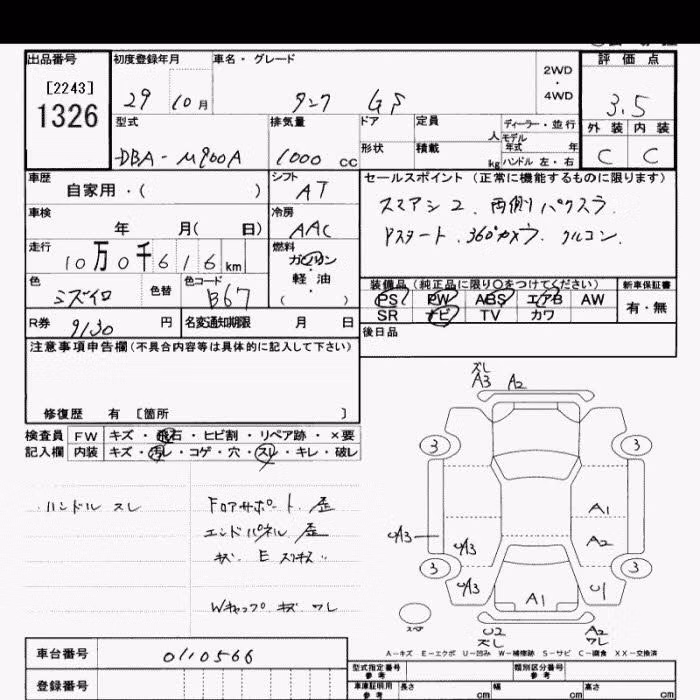 出品番号 初度登録年月 車名・グレード 評価点
[2243] 2WD
1326 29 10月 タンク GS ・ 3.5
4WD
型式 排気量 ドア 定員 人 ディーラー・並行 外装 内装
モデル年式 年
DBA-M900A 1000cc 形状 積載 kg ハンドル 左・右 C C
車歴 シフト セールスポイント(正常に機能するものに限ります)
自家用・( ) AT スマアシ2、両側パワスラ
車検 冷房 Pスタート、360°カメラ、クルコン、
年 月( 日) AAC
走行 燃料
10万0千616km ガソリン・軽油・( )
装備品(純正品に限り○をつけてください) 新車保証書
色 色替 色コード PS PW ABS エアB AW 有・無
ミズイロ B67 SR ナビ TV カワ
R券 9130円 名変通知期限 月 日 後日品
注意事項申告欄(不具合内容等は具体的に記入して下さい)
修復歴 有 [箇所 ]
検査員 FW キズ・飛石・ヒビ割・リペア跡・×要
記入欄 内装 キズ・汚レ・コゲ・穴・スレ・キレ・破レ
ズレ
A3 A2
3 3
ハンドル スレ Fロアサポート 歪
A1
エンドパネル 歪
A2
キズ E
3 3
A1
Wキャップ キズ ワレ
スペア U2 A2
ズレ ワレ
A-キズ E-エクボ U-凹み W-補修跡 S-サビ C-腐食 XX-交換済
車台番号 0110566
型式指定番号 参考 類別区分番号 参考
登録番号 車庫証明用 参考 長さ cm 幅 cm 高さ cm